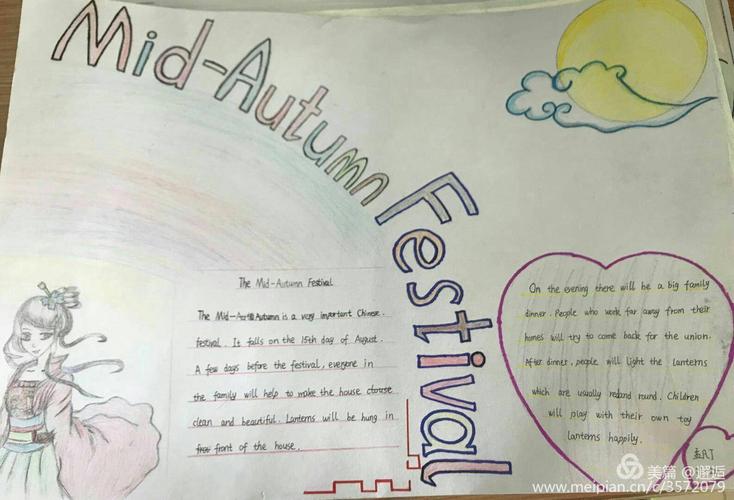 Mid-Autumn
Festival
The Mid-Autumn Festival
The Mid-Autumn is a very important Chinese
festival. It falls on the 15th day of August.
A few days before the festival, everyone in
the family will help to make the house
clean and beautiful. Lanterns will be hung in
front of the house.
On the evening there will be a big family
dinner. People who work far away from their
homes will try to come back for the union.
After dinner, people will light the lanterns
which are usually red and round. Children
will play with their own toy
lanterns happily.
美篇 @邂逅
www.meipian.cn/c/3572079